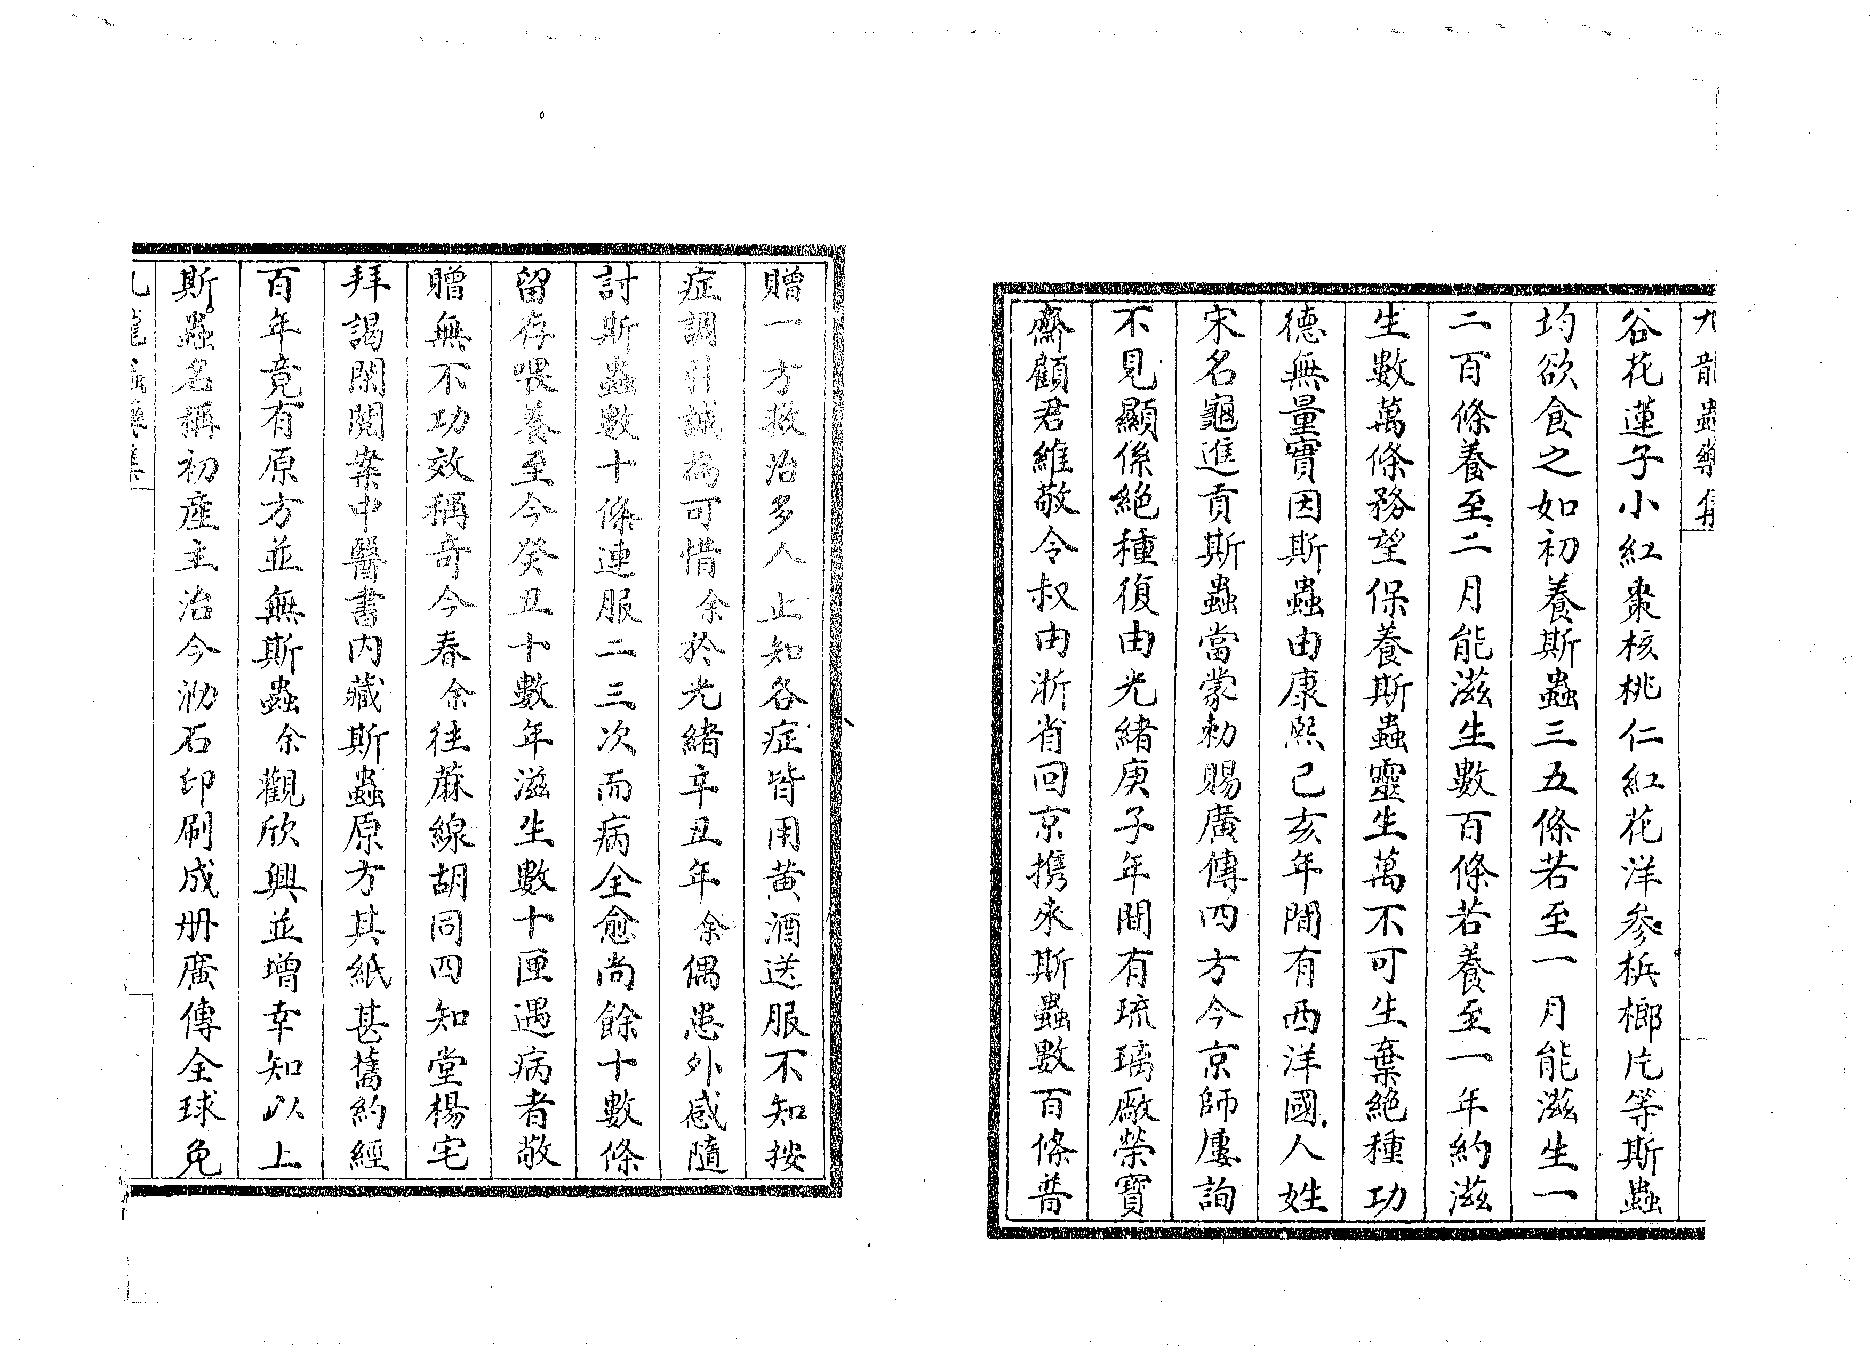 九龍蟲藥集
谷花蓮子小紅棗核桃仁紅花洋参梹榔片等斯蟲
均欲食之如初養斯蟲三五條若至一月能滋生一
二百條養至二月能滋生數百條若養至一年約滋
生數萬條務望保養斯蟲靈生萬不可生棄絕種功
德無量實因斯蟲由康熙己亥年間有西洋國人姓
宋名龜進貢斯蟲當蒙勅賜廣傳四方今京師屢詢
不見顯係絕種復由光緒庚子年間有琉璃廠榮寶
齋顧君維敬令叔由浙省回京携來斯蟲數百條普
贈一方救治多人止知各症皆用黃酒送服不知按
症調引誠為可惜余於光緒辛丑年余偶患外感隨
討斯蟲數十條連服二三次而病全愈尚餘十數條
留存喂養至今癸丑十數年滋生數十匣遇病者敬
贈無不功效稱奇今春余往蔴線胡同四知堂楊宅
拜謁閑閱案中醫書內藏斯蟲原方其紙甚舊約經
百年竟有原方並無斯蟲余觀欣興並增幸知以上
斯蟲名稱初產主治今泐石印刷成册廣傳全球免